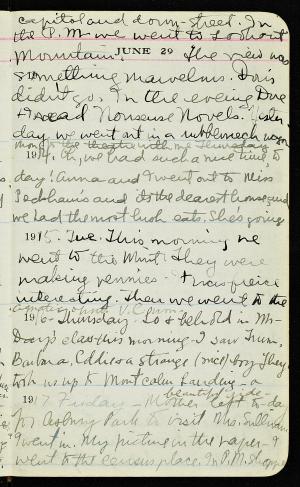 capitol and down-street. In
the P.M. we went to Lookout
Mountain.
JUNE 29
The view was
something marvelous. Doris
didn't go. In the evening Dre
& I read "Nonsense Novels." Yester-
day we went out in a rubberneck wagon
1914. Oh, we had such a nice time to
day! Anna and I went out to Miss
Peckham's and its the dearest house, and
we had the most bush eats. She's going
1915. Tue. This morning we
went to the Mint. They were
making pennies - & was fierce
interesting. Then we went to the
1916 - Thursday. Lo & behold in Mr.
Day's class this morning - I saw
Barbara, Eddie & a strange (nice) boy. They
took us up to Montcalm Landing - a
beautiful ride.
1917 Friday - Mother left to-day
for Asbury Park to visit Mrs. Sullivan.
I went in. My picture in the paper - I
went to the census place. In P.M.